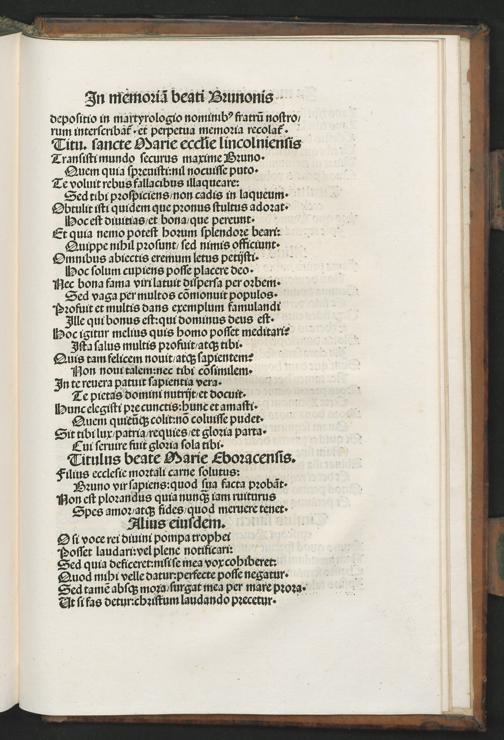 In memoriā beati Brunonis
depositio in martyrologio nominibꝰ fratrū nostro/
rum interscribať · et perpetua memoria recolať ·
Titu. sancte Marie ecclie lincolniensis
Transisti mundo securus maxime Bruno·
Quem quia spreuisti: nil nocuisse puto·
Te voluit rebus fallacibus illaqueare:
Sed tibi prospiciens/ non cadis in laqueum·
Obtulit isti quidem que pronus stultus adorat·
Hoc est diuitias/ et bona/ que pereunt·
Et quia nemo potest horum splendore beari:
Quippe nihil prosunt/ sed nimis officiunt·
Omnibus abiectis eremum letus petijsti·
Hoc solum cupiens posse placere deo·
Nec bona fama viri latuit dispersa per orbem·
Sed vaga per multos cōmonuit populos·
Profuit et multis dans exemplum famulandi
Ille qui bonus est: qui dominus deus est·
Hoc igitur melius quis homo posset meditari?
Ista salus multis profuit/ atqꝫ tibi·
Quis tam felicem nouit/ atqꝫ sapientem?
Non noui talem: nec tibi cōsimilem·
In te reuera patuit sapientia vera·
Te pietas domini nutrijt/ et docuit·
Hunc elegisti pre cunctis: hunc et amasti·
Quem quicūqꝫ colit: nō coluisse pudet·
Sit tibi lux/ patria/ requies/ et gloria parta·
Cui seruire fuit gloria sola tibi·
Titulus beate Marie Eboracensis.
Filius ecclesie mortali carne solutus:
Bruno vir sapiens: quod sua facta probāt·
Non est plorandus quia nunqꝫ iam ruiturus
Spes amor/ atqꝫ fides/ quod meruere tenet·
Alius eiusdem.
O si voce rei diuini pompa trophei
Posset laudari: vel plene notificari:
Sed quia deficeret: nisi se mea vox cohiberet:
Quod mihi velle datur: perfecte posse negatur·
Sed tamē absqꝫ mora/ surgat mea per mare prora·
Ut si fas detur: christum laudando precetur·